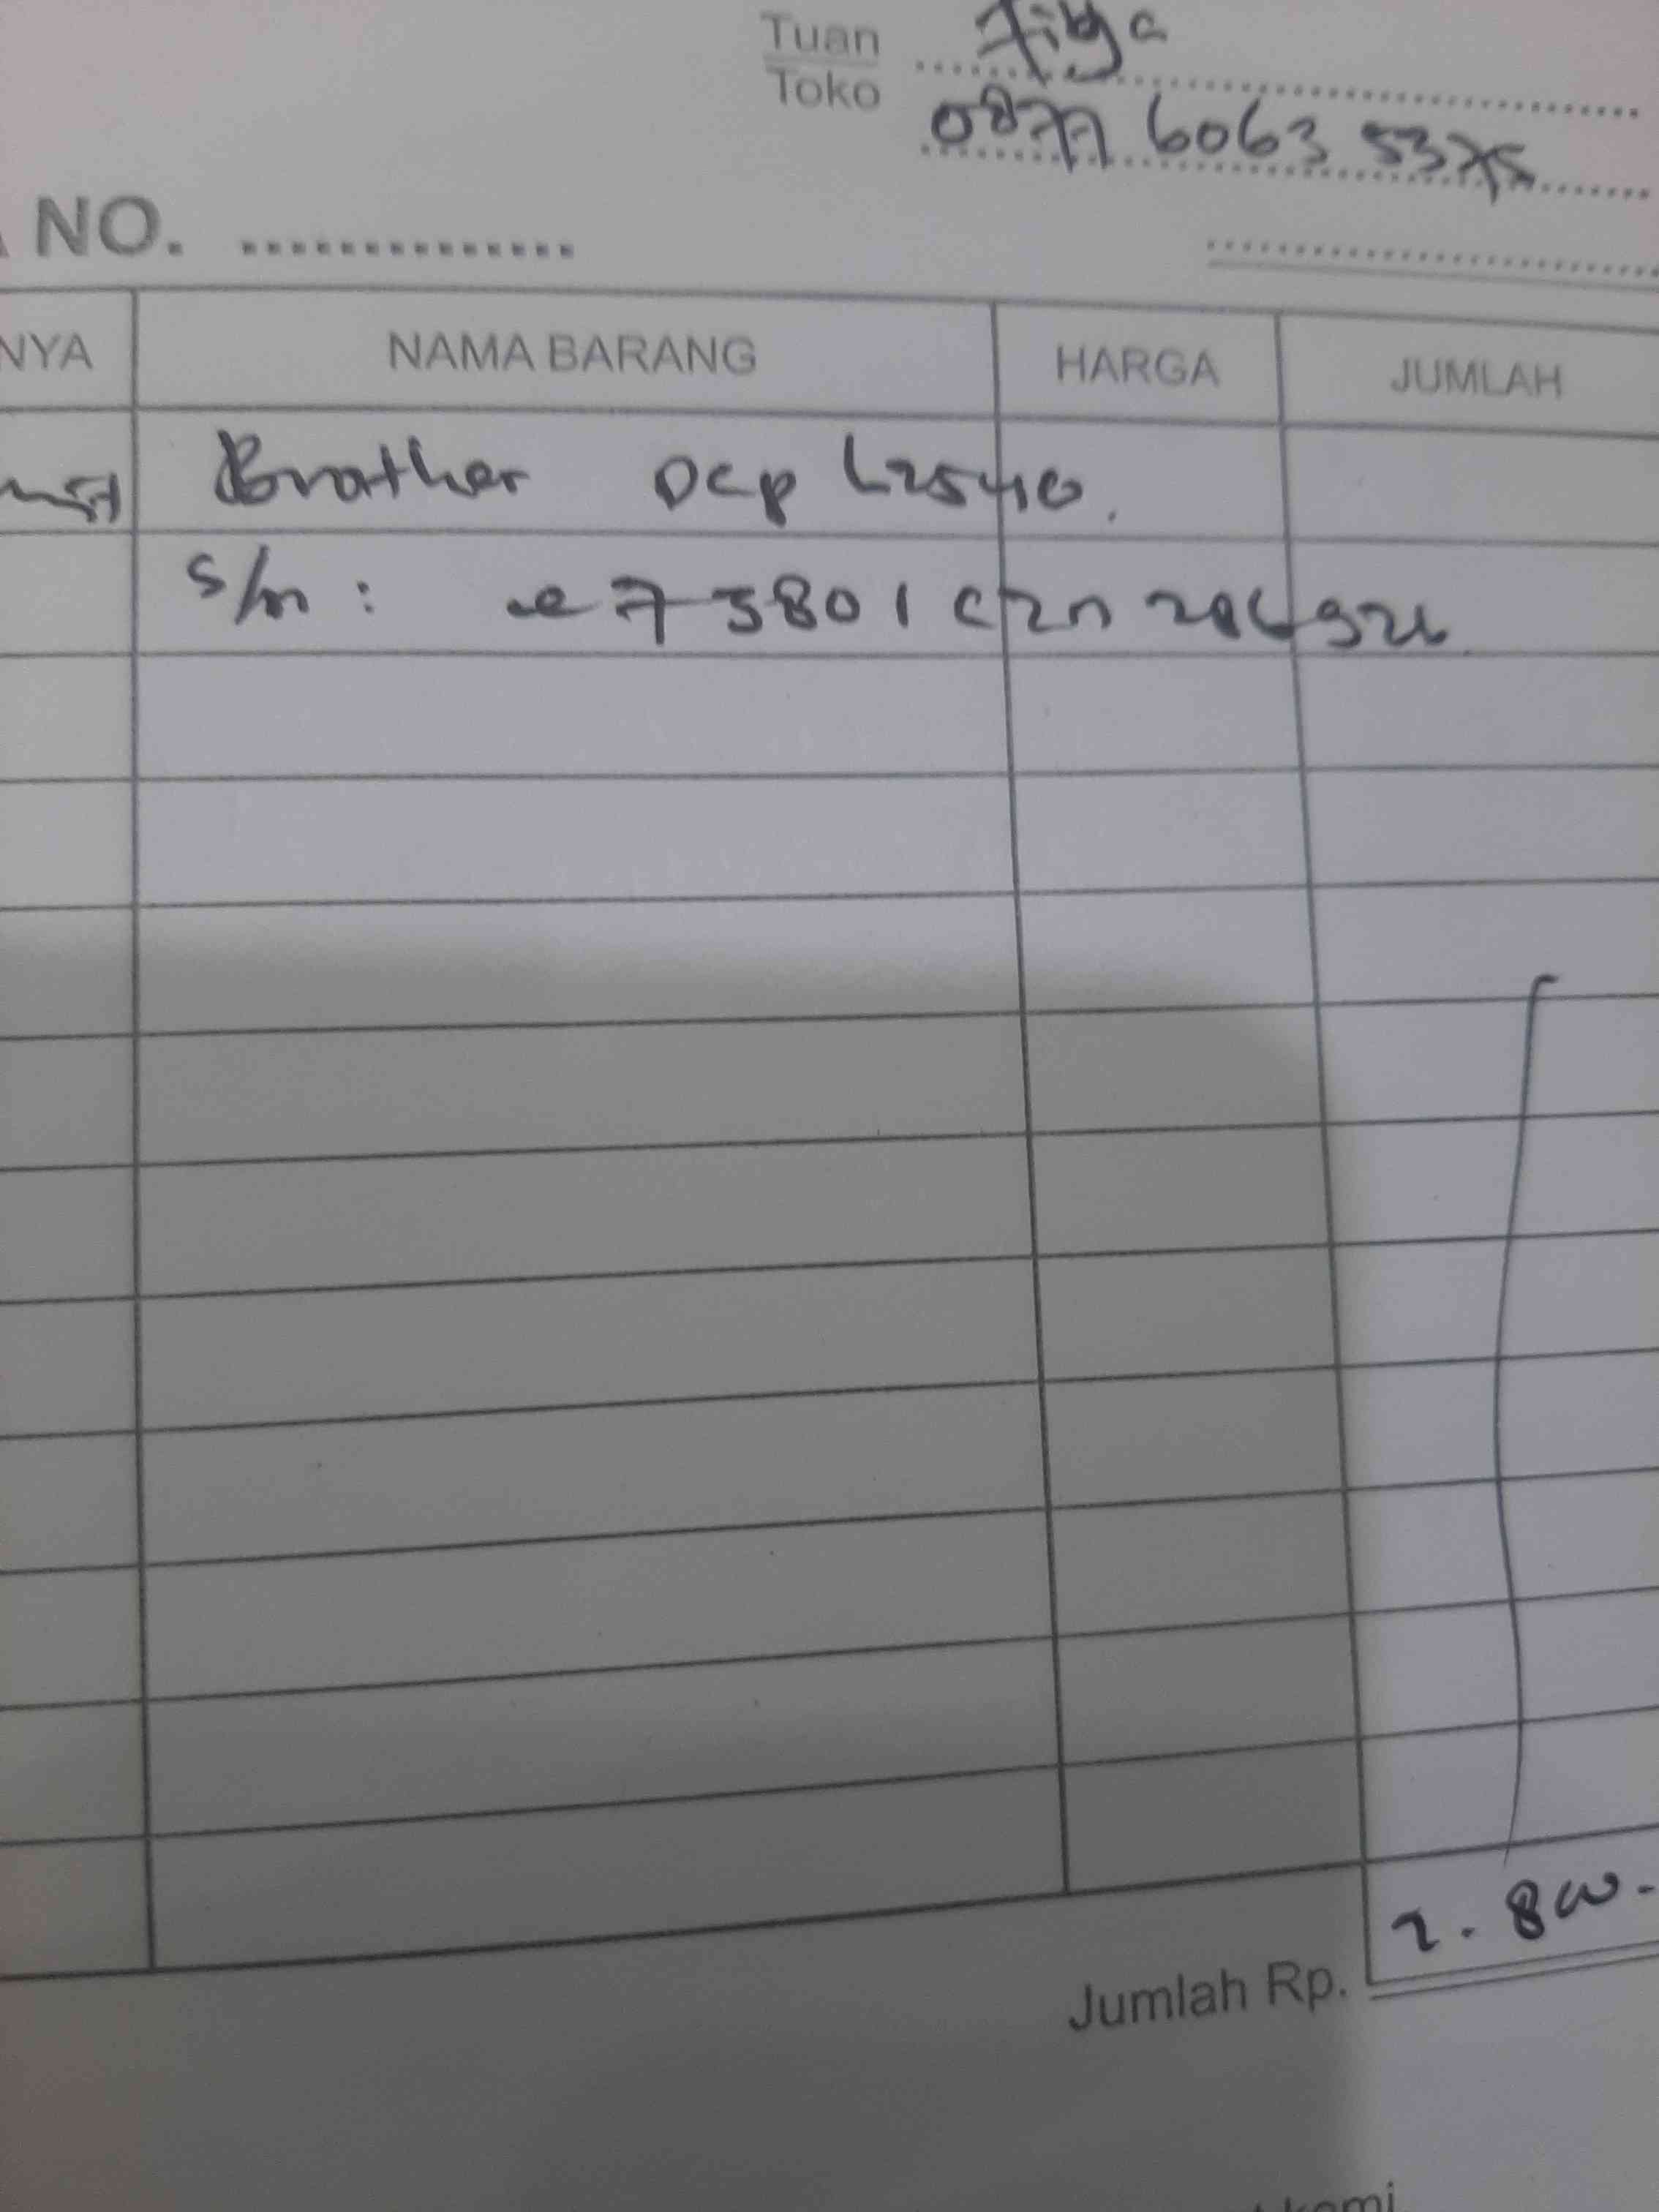 Tuan
Toko
0877 6063 5375
NO. ..............
NYA NAMA BARANG HARGA JUMLAH
Brother DCP L2540.
S/n : e 73801 c2n 206926
Jumlah Rp. 2.800.-